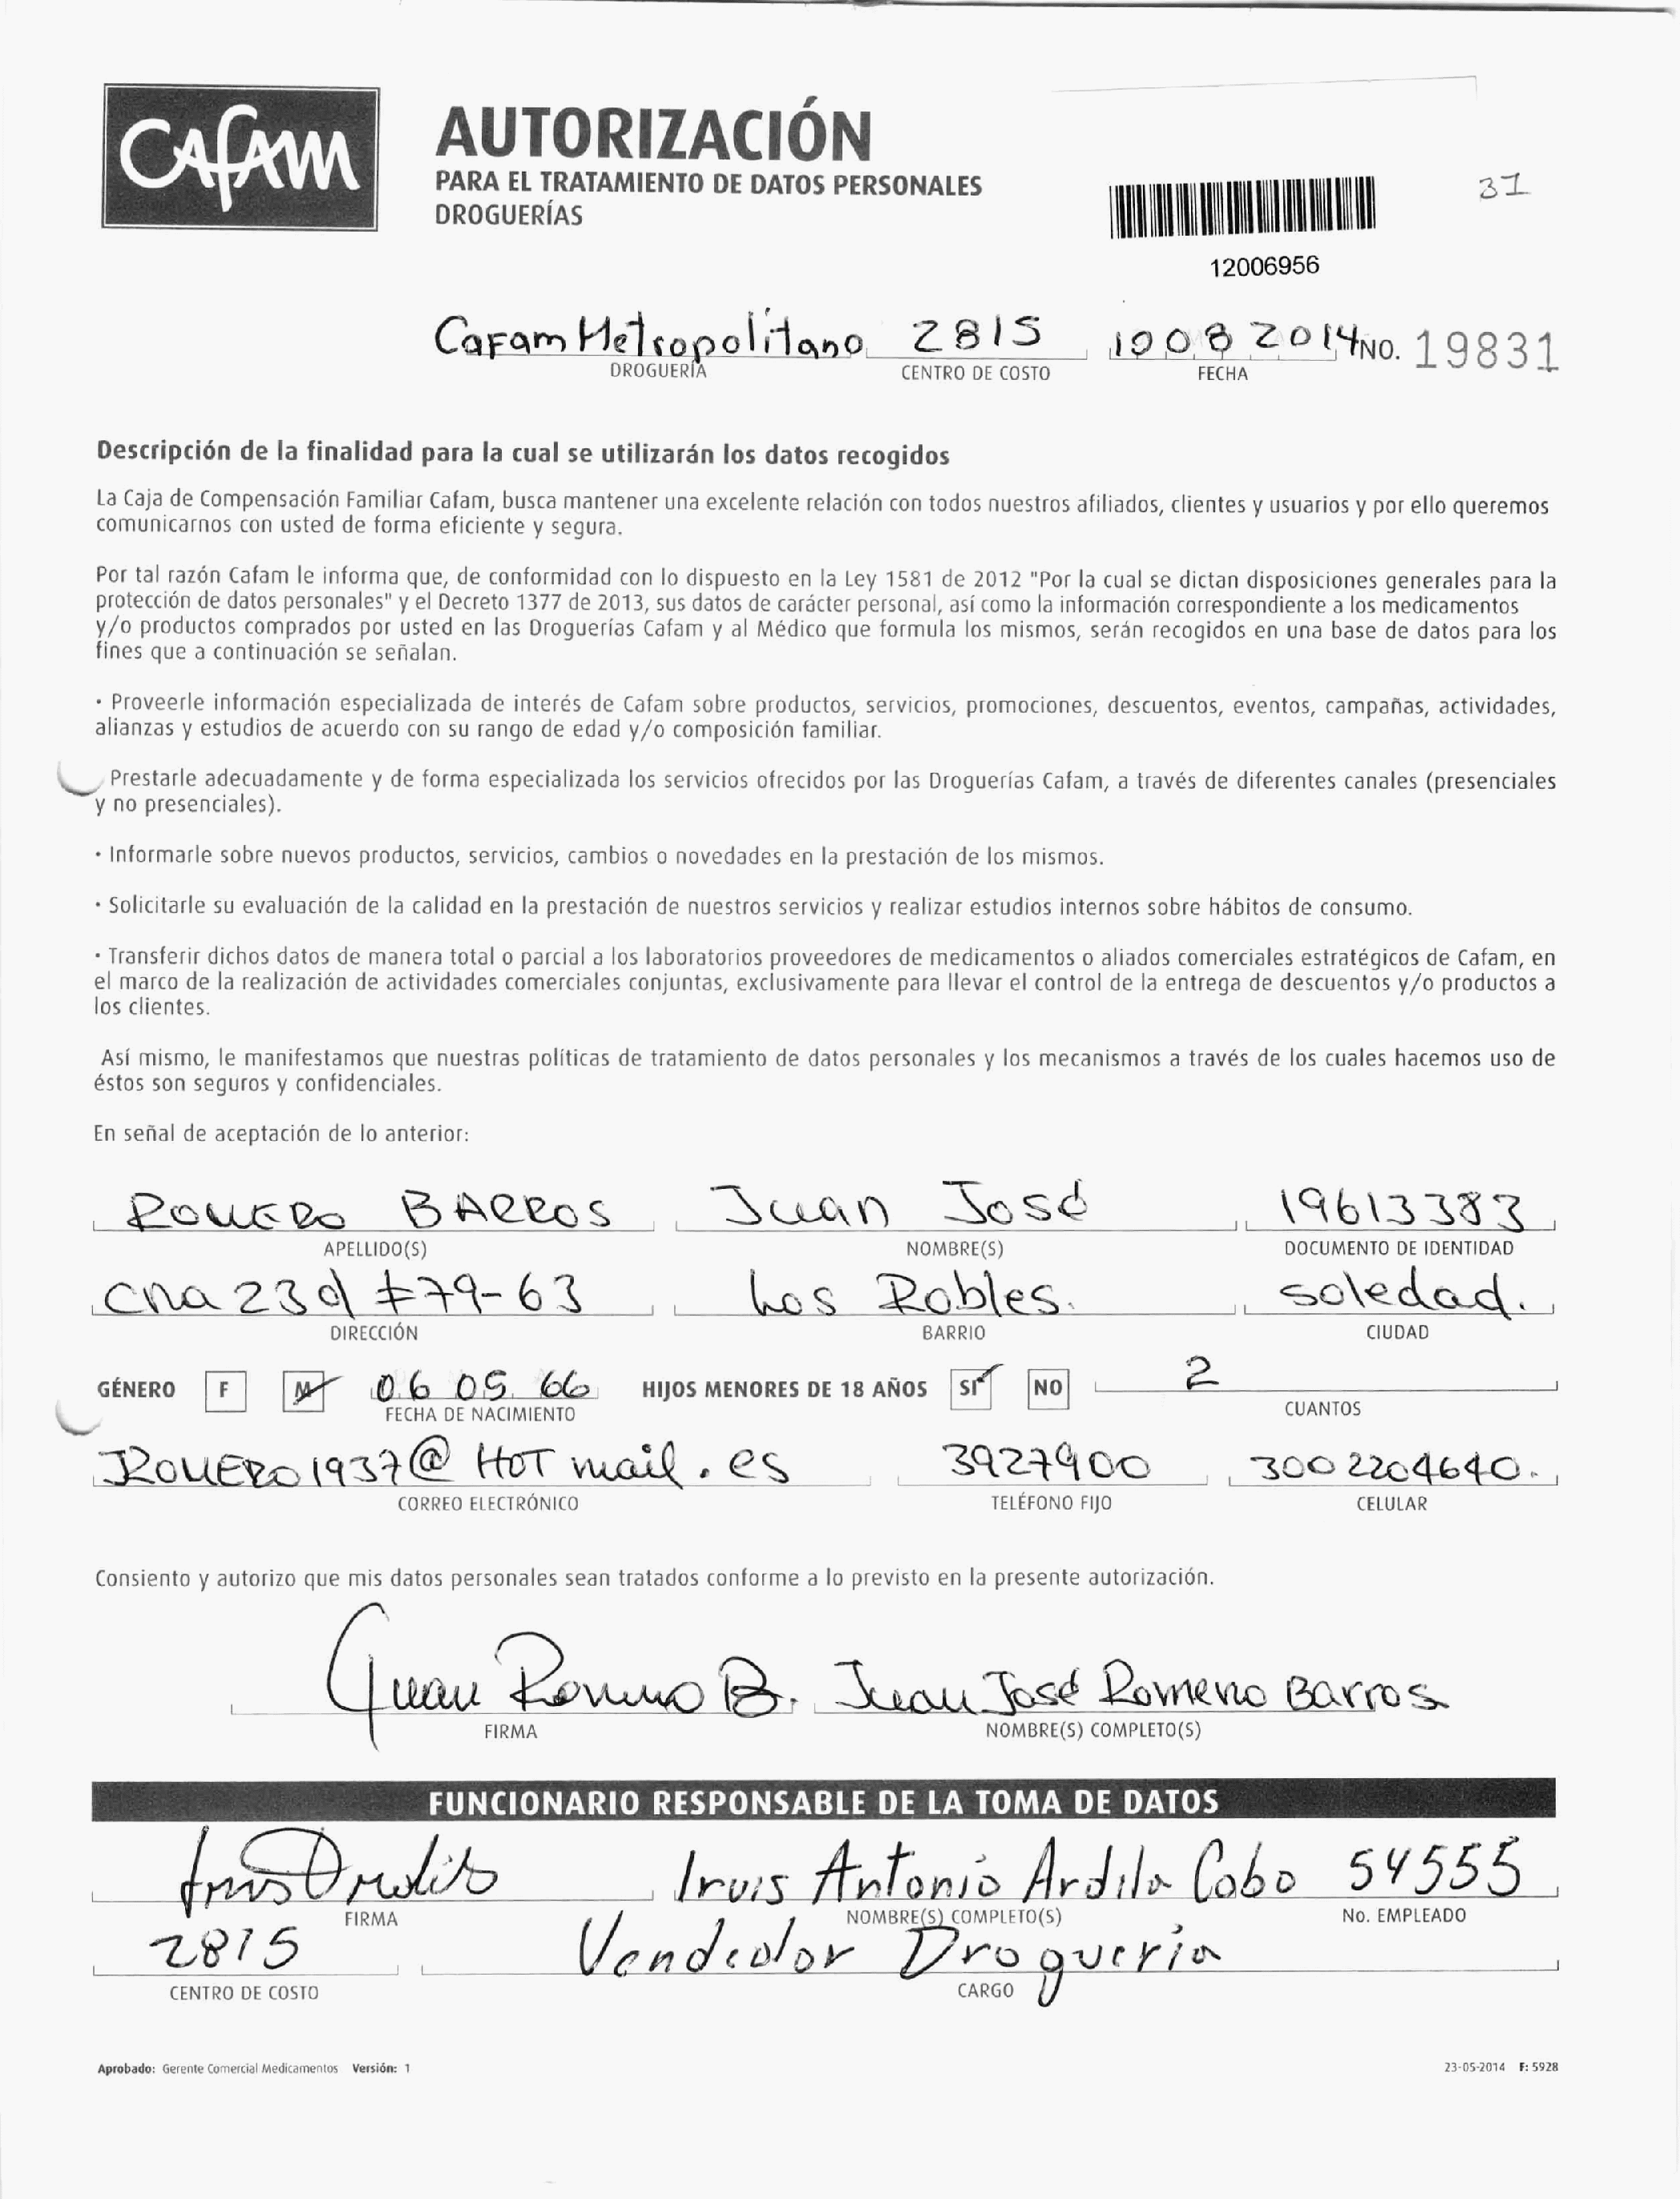 CAFAM
AUTORIZACIÓN
PARA EL TRATAMIENTO DE DATOS PERSONALES
DROGUERÍAS
31
12006956
Cafam Metropolitano 2815 10 08 2014 NO. 19831
DROGUERÍA CENTRO DE COSTO FECHA
Descripción de la finalidad para la cual se utilizarán los datos recogidos
La Caja de Compensación Familiar Cafam, busca mantener una excelente relación con todos nuestros afiliados, clientes y usuarios y por ello queremos
comunicarnos con usted de forma eficiente y segura.
Por tal razón Cafam le informa que, de conformidad con lo dispuesto en la Ley 1581 de 2012 "Por la cual se dictan disposiciones generales para la
protección de datos personales" y el Decreto 1377 de 2013, sus datos de carácter personal, así como la información correspondiente a los medicamentos
y/o productos comprados por usted en las Droguerías Cafam y al Médico que formula los mismos, serán recogidos en una base de datos para los
fines que a continuación se señalan.
· Proveerle información especializada de interés de Cafam sobre productos, servicios, promociones, descuentos, eventos, campañas, actividades,
alianzas y estudios de acuerdo con su rango de edad y/o composición familiar.
Prestarle adecuadamente y de forma especializada los servicios ofrecidos por las Droguerías Cafam, a través de diferentes canales (presenciales
y no presenciales).
· Informarle sobre nuevos productos, servicios, cambios o novedades en la prestación de los mismos.
· Solicitarle su evaluación de la calidad en la prestación de nuestros servicios y realizar estudios internos sobre hábitos de consumo.
· Transferir dichos datos de manera total o parcial a los laboratorios proveedores de medicamentos o aliados comerciales estratégicos de Cafam, en
el marco de la realización de actividades comerciales conjuntas, exclusivamente para llevar el control de la entrega de descuentos y/o productos a
los clientes.
Así mismo, le manifestamos que nuestras políticas de tratamiento de datos personales y los mecanismos a través de los cuales hacemos uso de
éstos son seguros y confidenciales.
En señal de aceptación de lo anterior:
ROMERO BARROS Juan José 19613383
APELLIDO(S) NOMBRE(S) DOCUMENTO DE IDENTIDAD
Cra 23d #79-63 Los Robles. soledad.
DIRECCIÓN BARRIO CIUDAD
GÉNERO F M 06 05 66 HIJOS MENORES DE 18 AÑOS SI NO 2
FECHA DE NACIMIENTO CUANTOS
JROMERO1937@HOTmail.es 3927900 3002204640.
CORREO ELECTRÓNICO TELÉFONO FIJO CELULAR
Consiento y autorizo que mis datos personales sean tratados conforme a lo previsto en la presente autorización.
Juan Romero B. Juan José Romero Barros
FIRMA NOMBRE(S) COMPLETO(S)
FUNCIONARIO RESPONSABLE DE LA TOMA DE DATOS
Irvis Antonio Ardila Cobo 54555
FIRMA NOMBRE(S) COMPLETO(S) No. EMPLEADO
2815 Vendedor Drogueria
CENTRO DE COSTO CARGO
Aprobado: Gerente Comercial Medicamentos Versión: 1 23-05-2014 F: 5928